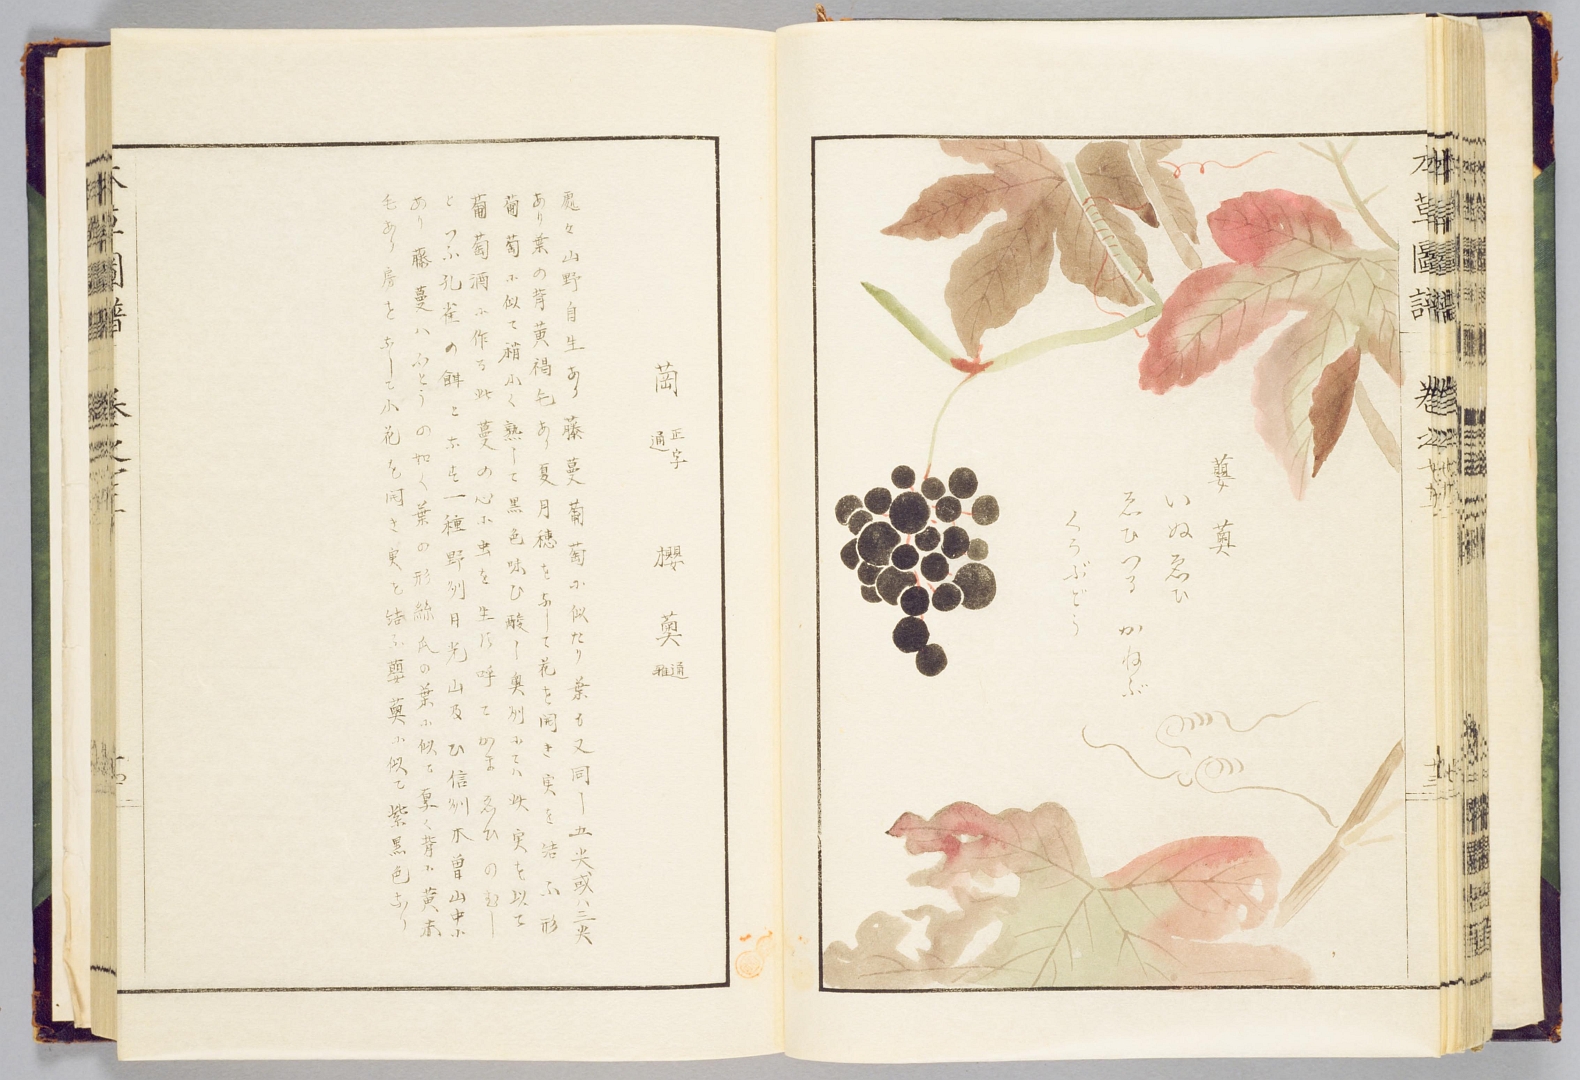 蘡薁
いぬゑひ
ゑひつる かねぶ
くうぶどう
櫻薁 通雅
處々山野自生あり藤蔓葡萄ニ似たり葉も又同し五尖或ハ三尖
あり葉の背黄褐毛あり夏月穂をなして花を開き実を結ふ形
葡萄ニ似て稍小く熟して黒色味ひ酸し奥州ニてハ此実を以て
葡萄酒ニ作る此蔓の心ニ虫を生ル呼てかまゑひのむし
といふ孔雀の餌となす一種野州月光山及ひ信州木曽山中ニ
あり藤蔓ハぶとうの如く葉の形絲瓜の葉ニ似て厚く背ニ黄赤
毛あり房をなして小花を開き実を結ふ蘡薁ニ似て紫黒色なり
本草圖譜